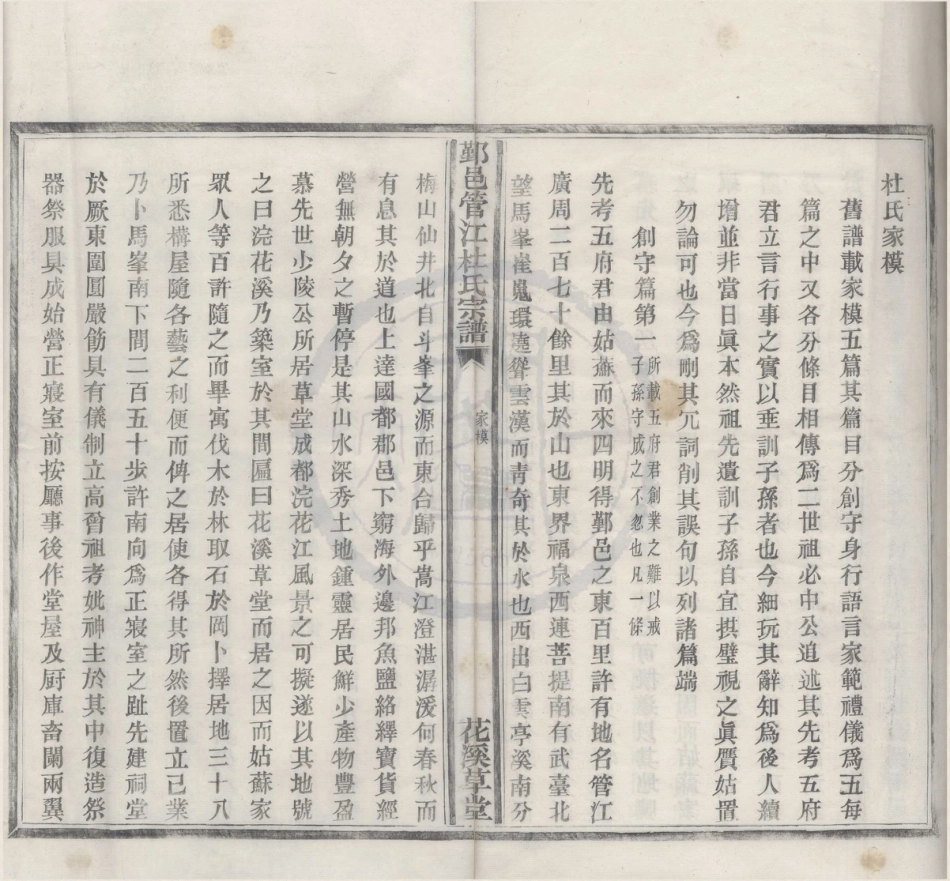 杜氏家模
舊譜載家模五篇其篇目分創守身行語言家範禮儀爲五每
篇之中又各分條目相傳爲二世祖必中公追述其先考五府
君立言行事之實以垂訓子孫者也今細玩其辭知爲後人續
增並非當日眞本然祖先遺訓子孫自宜拱璧視之眞贋姑置
勿論可也今爲刪其冗詞削其誤句以列諸篇端
創守篇第一
所載五府君創業之難以戒
子孫守成之不怠也凡一條
先考五府君由姑蘇而來四明得鄞邑之東百里許有地名管江
廣周二百七十餘里其於山也東界福泉西連菩提南有武臺北
望馬峯崖嵬環遶聳雲漢而青奇其於水也西出白雲亭溪南分
鄞邑管江杜氏宗譜
家模
花溪草堂
梅山仙井北自斗峯之源而東合歸乎嵩江澄湛潺湲何春秋而
有息其於道也上達國都郡邑下窮海外邊邦魚鹽絡繹寶貨經
營無朝夕之暫停是其山水深秀土地鍾靈居民鮮少產物豐盈
慕先世少陵公所居草堂成都浣花江風景之可擬遂以其地號
之曰浣花溪乃築室於其間匾曰花溪草堂而居之因而姑蘇家
眾人等百許隨之而畢寓伐木於林取石於岡卜擇居地三十八
所悉構屋隨各藝之利便而俾之居使各得其所然後置立已業
乃卜馬峯南下間二百五十步許南向爲正寢室之趾先建祠堂
於厥東圍圓嚴飭具有儀制立高曾祖考妣神主於其中復造祭
器祭服具成始營正寢室前按廳事後作堂屋及厨庫畜闌兩翼